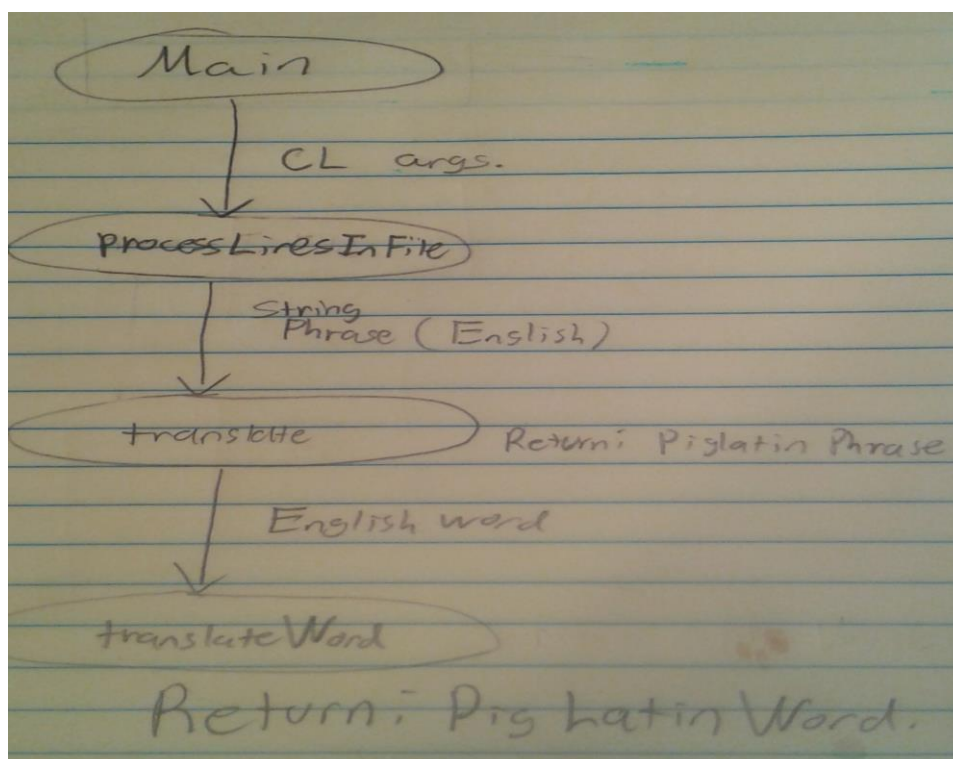 Main
CL args.
processLinesInFile
String
Phrase (English)
translate
Return: Piglatin Phrase
English word
translateWord
Return: Pig Latin Word.